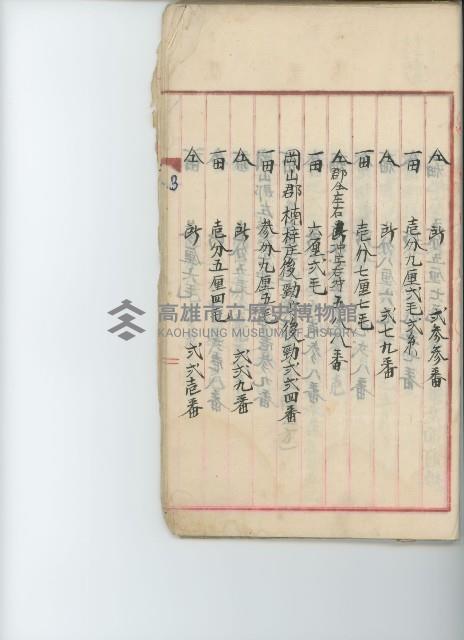 仝 所 弍参参番
一田 壱分九厘弍毛弍糸
仝 所 弍七九番
一田 壱分七厘七毛
仝郡仝庄右冲字右冲五八八番
一田 六厘弍毛
岡山郡楠梓庄後勁字後勁弍弍四番
一田 参分九厘五毛
仝 所 弍弍九番
一田 壱分五厘四毛
仝 所 弍弍壱番
3
高雄市立歷史博物館
KAOHSIUNG MUSEUM OF HISTORY